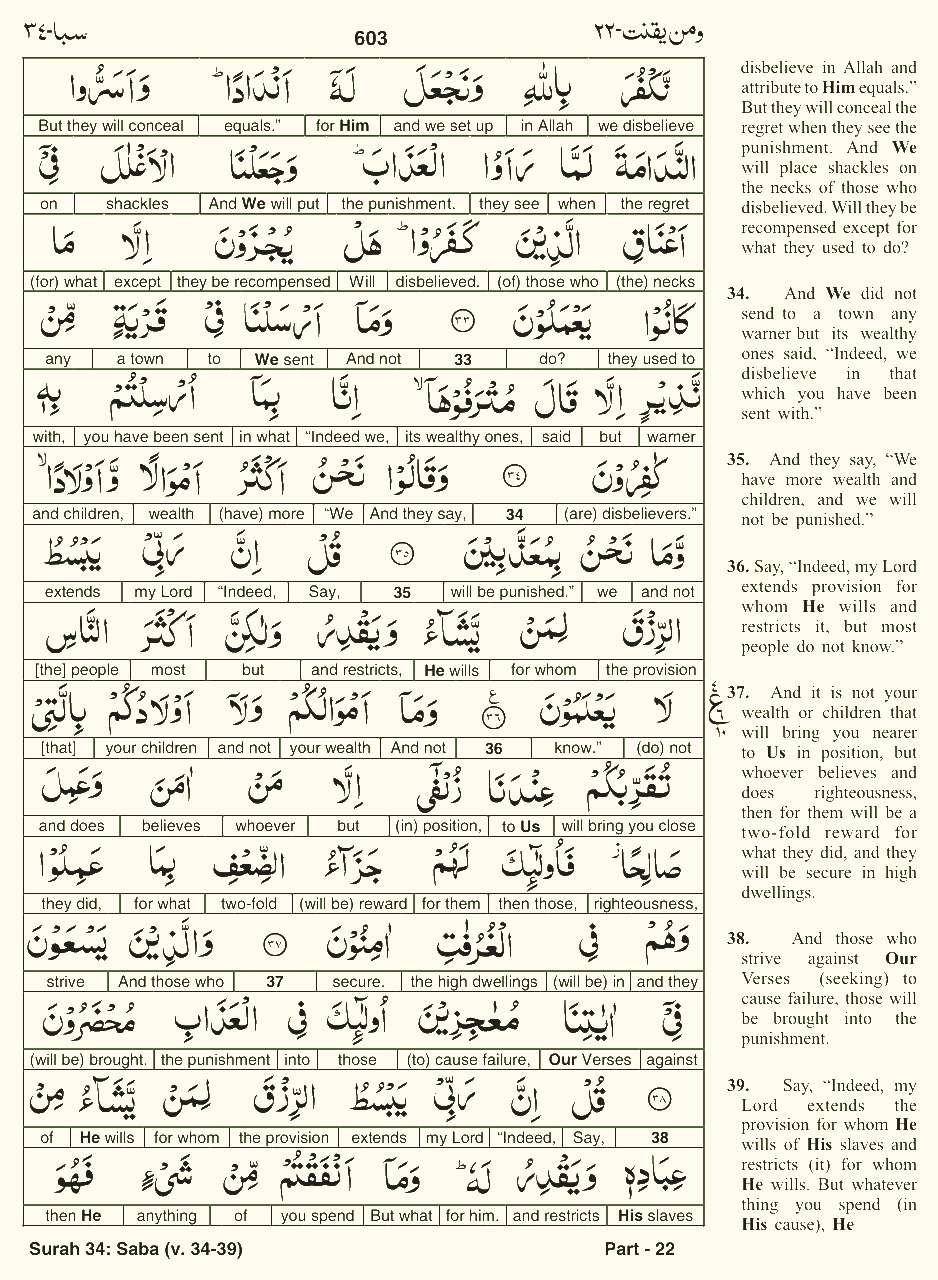 ومن يقنت-٢٢
603
سبا-٣٤
نَّكْفُرَ بِاللّٰهِ وَنَجْعَلَ لَهٗۤ اَنْدَادًا ؕ وَاَسَرُّوا
we disbelieve in Allah and we set up for Him equals.” But they will conceal
النَّدَامَةَ لَمَّا رَاَوُا الْعَذَابَ ؕ وَجَعَلْنَا الْاَغْلٰلَ فِيْۤ
the regret when they see the punishment. And We will put shackles on
اَعْنَاقِ الَّذِيْنَ كَفَرُوْا ؕ هَلْ يُجْزَوْنَ اِلَّا مَا
(the) necks (of) those who disbelieved. Will they be recompensed except (for) what
كَانُوْا يَعْمَلُوْنَ ٣٣ وَمَاۤ اَرْسَلْنَا فِيْ قَرْيَةٍ مِّنْ
they used to do? 33 And not We sent to a town any
نَّذِيْرٍ اِلَّا قَالَ مُتْرَفُوْهَاۤ ۙ اِنَّا بِمَاۤ اُرْسِلْتُمْ بِهٖ
warner but said its wealthy ones, “Indeed we, in what you have been sent with,
كٰفِرُوْنَ ٣٤ وَقَالُوْا نَحْنُ اَكْثَرُ اَمْوَالًا وَّاَوْلَادًا ۙ
(are) disbelievers.” 34 And they say, “We (have) more wealth and children,
وَّمَا نَحْنُ بِمُعَذَّبِيْنَ ٣٥ قُلْ اِنَّ رَبِّيْ يَبْسُطُ
and not we will be punished.” 35 Say, “Indeed, my Lord extends
الرِّزْقَ لِمَنْ يَّشَآءُ وَيَقْدِرُ وَلٰكِنَّ اَكْثَرَ النَّاسِ
the provision for whom He wills and restricts, but most [the] people
لَا يَعْلَمُوْنَ ٣٦ ع وَمَاۤ اَمْوَالُكُمْ وَلَاۤ اَوْلَادُكُمْ بِالَّتِيْ
(do) not know.” 36 And not your wealth and not your children [that]
تُقَرِّبُكُمْ عِنْدَنَا زُلْفٰۤى اِلَّا مَنْ اٰمَنَ وَعَمِلَ
will bring you close to Us (in) position, but whoever believes and does
صَالِحًا ؗ فَاُولٰٓئِكَ لَهُمْ جَزَآءُ الضِّعْفِ بِمَا عَمِلُوْا
righteousness, then those, for them (will be) reward two-fold for what they did,
وَهُمْ فِي الْغُرُفٰتِ اٰمِنُوْنَ ٣٧ وَالَّذِيْنَ يَسْعَوْنَ
and they (will be) in the high dwellings secure. 37 And those who strive
فِيْۤ اٰيٰتِنَا مُعٰجِزِيْنَ اُولٰٓئِكَ فِي الْعَذَابِ مُحْضَرُوْنَ
against Our Verses (to) cause failure, those into the punishment (will be) brought.
٣٨ قُلْ اِنَّ رَبِّيْ يَبْسُطُ الرِّزْقَ لِمَنْ يَّشَآءُ مِنْ
38 Say, “Indeed, my Lord extends the provision for whom He wills of
عِبَادِهٖ وَيَقْدِرُ لَهٗ ؕ وَمَاۤ اَنْفَقْتُمْ مِّنْ شَيْءٍ فَهُوَ
His slaves and restricts for him. But what you spend of anything then He
disbelieve in Allah and
attribute to Him equals.”
But they will conceal the
regret when they see the
punishment. And We
will place shackles on
the necks of those who
disbelieved. Will they be
recompensed except for
what they used to do?
34. And We did not
send to a town any
warner but its wealthy
ones said, “Indeed, we
disbelieve in that
which you have been
sent with.”
35. And they say, “We
have more wealth and
children, and we will
not be punished.”
36. Say, “Indeed, my Lord
extends provision for
whom He wills and
restricts it, but most
people do not know.”
٤
ع
٦
١٠
37. And it is not your
wealth or children that
will bring you nearer
to Us in position, but
whoever believes and
does righteousness,
then for them will be a
two-fold reward for
what they did, and they
will be secure in high
dwellings.
38. And those who
strive against Our
Verses (seeking) to
cause failure, those will
be brought into the
punishment.
39. Say, “Indeed, my
Lord extends the
provision for whom He
wills of His slaves and
restricts (it) for whom
He wills. But whatever
thing you spend (in
His cause), He
Surah 34: Saba (v. 34-39)
Part - 22